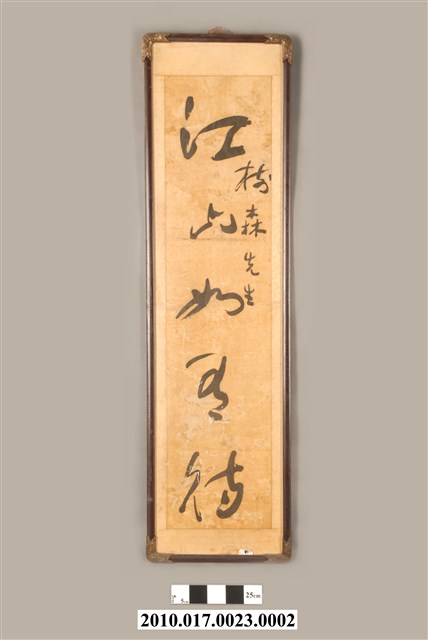 樹森先生
江山如有待
25cm
2010.017.0023.0002